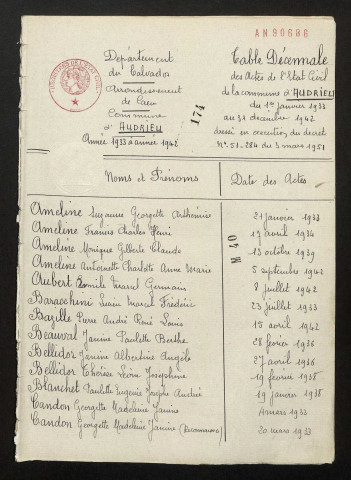 AN90686
Département
du Calvados
Arrondissement
de Caen
Commune
d'AUDRIEU
Année 1933 à année 1942
174
Table Décennale
des Actes de l'Etat Civil
de la commune d'AUDRIEU
du 1er janvier 1933
au 31 décembre 1942
dressé en exécution du décret
N° 51-284 du 3 mars 1951
Noms et Prénoms
Date des Actes
M 40
Ameline Suzanne Georgette Arthémise 21 janvier 1933
Ameline Francis Charles Henri 19 avril 1934
Ameline Monique Gilberte Claude 13 octobre 1939
Ameline Antoinette Charlotte Anne Marie 5 septembre 1942
Aubert Emile Marcel Germain 8 juillet 1942
Baracchini Lucien Marcel Frédéric 23 juillet 1933
Bazille Pierre André René Louis 15 avril 1942
Beauval Janine Paulette Berthe 28 février 1936
Bellidor Janine Albertine Angèle 27 avril 1936
Bellidor Thérèse Léone Joséphine 19 février 1938
Blanchet Paulette Eugénie Josèphe Andrée 19 janvier 1938
Candon Georgette Madeleine Janine 4 mars 1933
Candon Georgette Madeleine Janine (Reconnaissance) 20 mars 1933